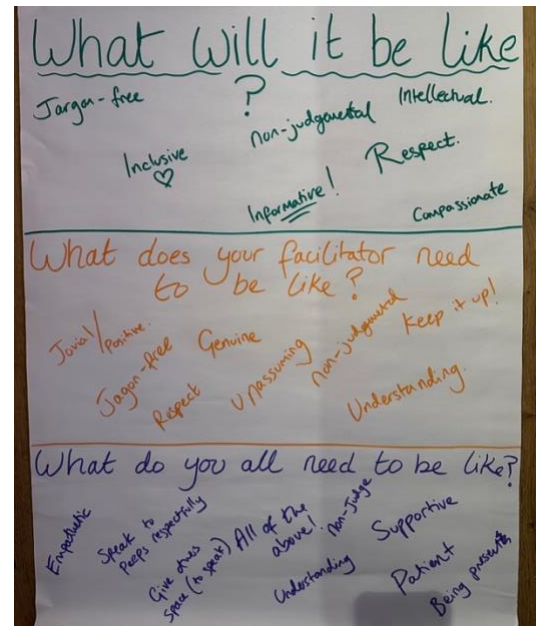 What will it be like
?
Jargon-free
non-judgmental
Intellectual.
Inclusive
Respect.
Informative!
Compassionate
What does your facilitator need
to be like?
Jovial/positive.
Jagon-free
Genuine
Respect
Unassuming
non-judgmental
Keep it up!
Understanding.
What do you all need to be like?
Empathetic
Speak to
Peeps respectfully
Give others
Space (to speak)
All of the
above!
Non-Judge
Understanding
Supportive
Patient
Being present